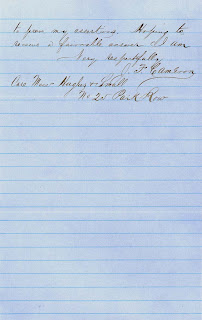 to prove my assertions. Hoping to
receive a favorable answer I am
Very respectfully
J. F. 
Care Messrs Hughes & Small
No 20 Park Row